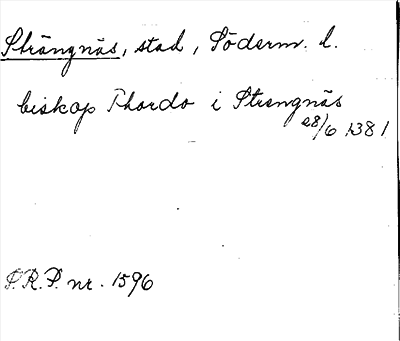 Strängnäs, stad, Söderm. l.
biskop Thordo i Strengnäs
28/6 1381
P.R.P. nr. 1596